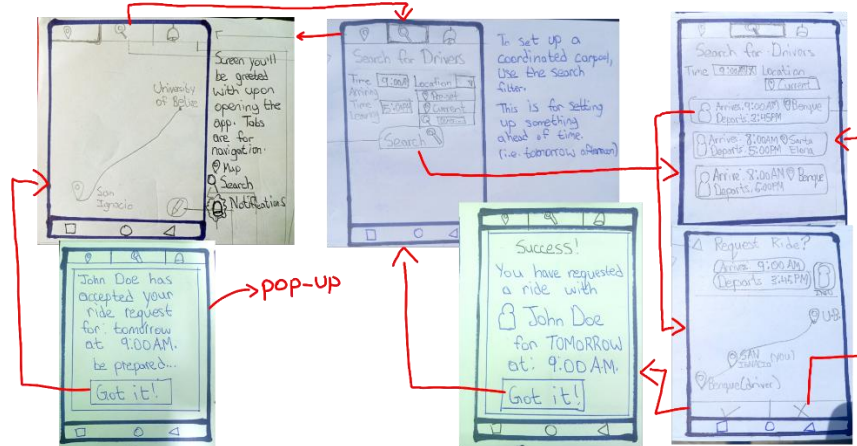 University
of Belize
San
Ignacio
Screen you'll
be greeted
with upon
opening the
app. Tabs
are for
navigation.
Map
Search
Notifications
Search for Drivers
Time
Arriving
9:00AM
Location
Preset
Current
Time
Leaving
Search
To set up a
coordinated carpool,
Use the search
filter.
This is for setting
up something
ahead of time.
(i.e. tomorrow afternoon)
Search for Drivers
Time
Location
Current
Arrives 9:00AM Benque
Departs 3:45PM
Arrives: 8:00AM Santa
Departs: 5:00PM Elena
Arrive: 8:00AM Benque
Departs: 5:00PM
John Doe has
accepted your
ride request
for: tomorrow
at 9:00AM.
be prepared...
Got it!
pop-up
Success!
You have requested
a ride with
John Doe
for TOMORROW
at: 9:00AM.
Got it!
Request Ride?
Arrives 9:00AM
Departs 3:45PM
INFO
UB
SAN (YOU)
IGNACIO
Benque (driver)